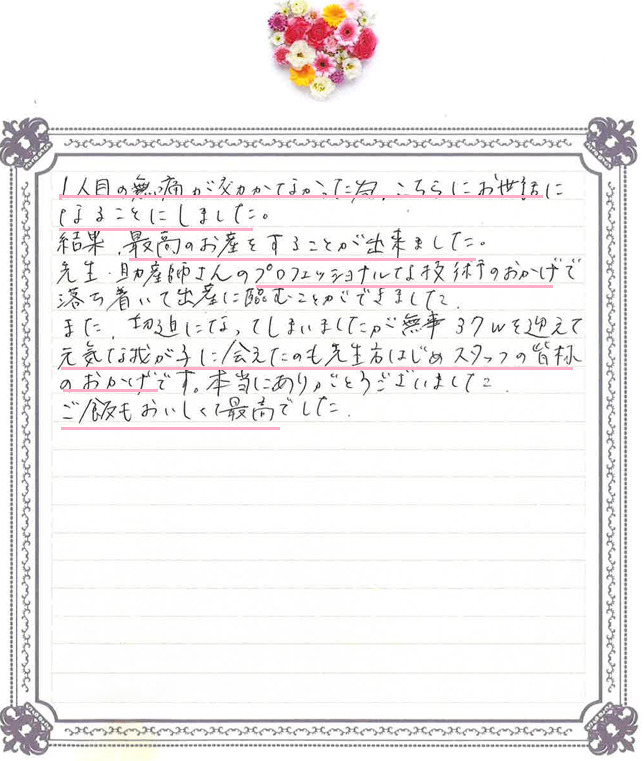 1人目の無痛が効かなかった為、こちらにお世話に
なることにしました。
結果、最高のお産をすることが出来ました。
先生・助産師さんのプロフェッショナルな技術のおかげで
落ち着いて出産に臨むことができました。
また、切迫になってしまいましたが無事37wを迎えて
元気な我が子に会えたのも先生方はじめスタッフの皆様
のおかげです。本当にありがとうございました。
ご飯もおいしくて最高でした。